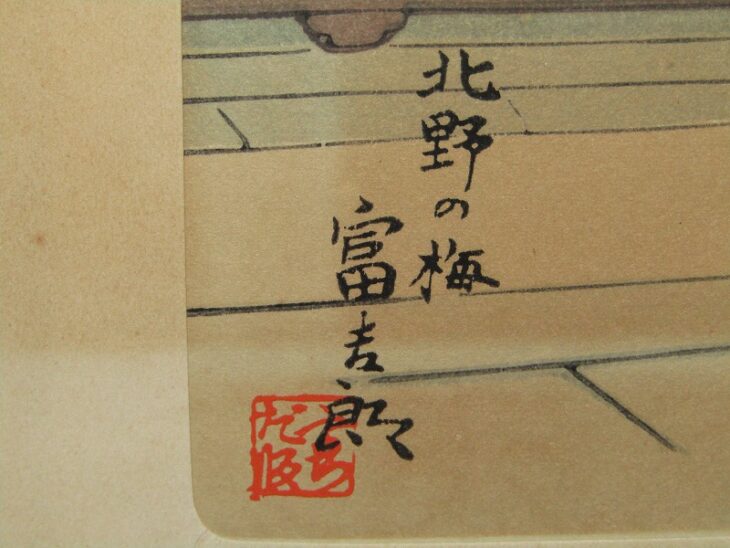 北野の梅
富吉郎